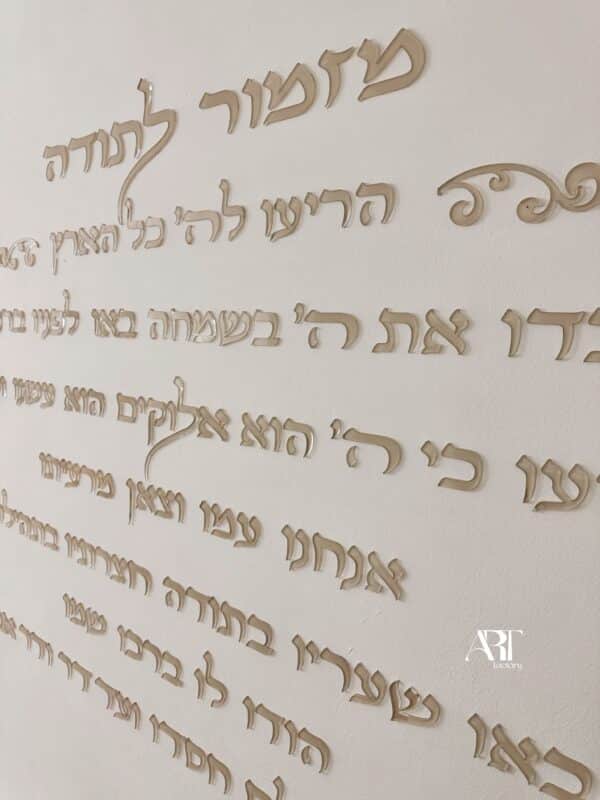 מזמור לתודה
הריעו לה' כל הארץ
בדו את ה' בשמחה באו לפניו
עו כי ה' הוא אלוקים הוא עשנו
אנחנו עמו וצאן מרעיתו
באו שעריו בתודה חצרותיו בתהילה
הודו לו ברכו שמו
חסדו ועד דר ודר
ART
factory